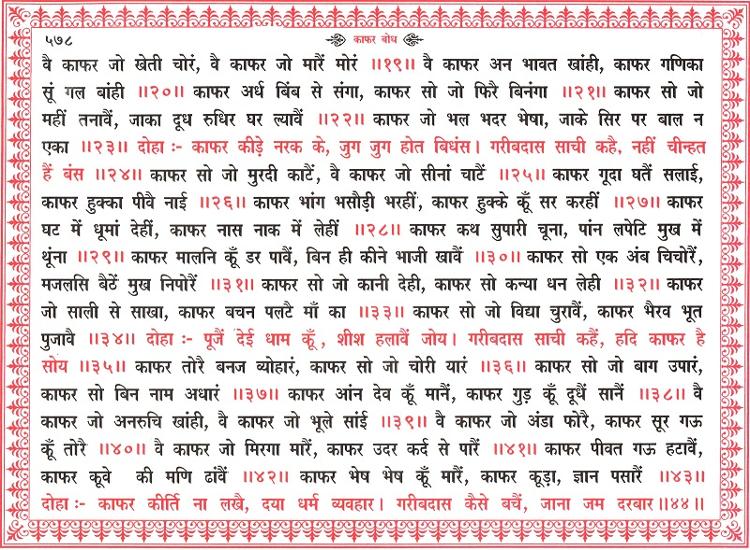 ५७८
काफर बोध
वै काफर जो खेती चोरं, वै काफर जो मारैं मोरं ॥१९॥ वै काफर अन भावत खांही, काफर गणिका
सूं गल बांही ॥२०॥ काफर अर्ध बिंब से संगा, काफर सो जो फिरै बिनंगा ॥२१॥ काफर सो जो
महीं तनावैं, जाका दूध रुधिर घर ल्यावैं ॥२२॥ काफर जो भल भदर भेषा, जाके सिर पर बाल न
एका ॥२३॥ दोहा :- काफर कीड़े नरक के, जुग जुग होत बिधंस। गरीबदास साची कहै, नहीं चीन्हत
हैं बंस ॥२४॥ काफर सो जो मुरदी काटैं, वै काफर जो सीनां चाटैं ॥२५॥ काफर गूदा घतैं सलाई,
काफर हुक्का पीवै नाई ॥२६॥ काफर भांग भसौड़ी भरहीं, काफर हुक्के कूँ सर करहीं ॥२७॥ काफर
घट में धूमां देहीं, काफर नास नाक में लेहीं ॥२८॥ काफर कथ सुपारी चूना, पांन लपेटि मुख में
थूंना ॥२९॥ काफर मालनि कूँ डर पावैं, बिन ही कीने भाजी खावैं ॥३०॥ काफर सो एक अंब चिचोरैं,
मजलसि बैठें मुख निपोरैं ॥३१॥ काफर सो जो कानी देही, काफर सो कन्या धन लेही ॥३२॥ काफर
जो साली से साखा, काफर बचन पलटै माँ का ॥३३॥ काफर सो जो विद्या चुरावैं, काफर भैरव भूत
पुजावै ॥३४॥ दोहा :- पूजैं देई धाम कूँ, शीश हलावैं जोय। गरीबदास साची कहैं, हदि काफर है
सोय ॥३५॥ काफर तोरै बनज ब्योहारं, काफर सो जो चोरी यारं ॥३६॥ काफर सो जो बाग उपारं,
काफर सो बिन नाम अधारं ॥३७॥ काफर आंन देव कूँ मानैं, काफर गुड़ कूँ दूधैं सानैं ॥३८॥ वै
काफर जो अनरुचि खांही, वै काफर जो भूले सांई ॥३९॥ वै काफर जो अंडा फोरै, काफर सूर गऊ
कूँ तोरै ॥४०॥ वै काफर जो मिरगा मारैं, काफर उदर कर्द से पारैं ॥४१॥ काफर पीवत गऊ हटावैं,
काफर कूवे की मणि ढांवैं ॥४२॥ काफर भेष भेष कूँ मारैं, काफर कूड़ा, ज्ञान पसारैं ॥४३॥
दोहा :- काफर कीर्ति ना लखै, दया धर्म व्यवहार। गरीबदास कैसे बचैं, जाना जम दरबार॥४४॥